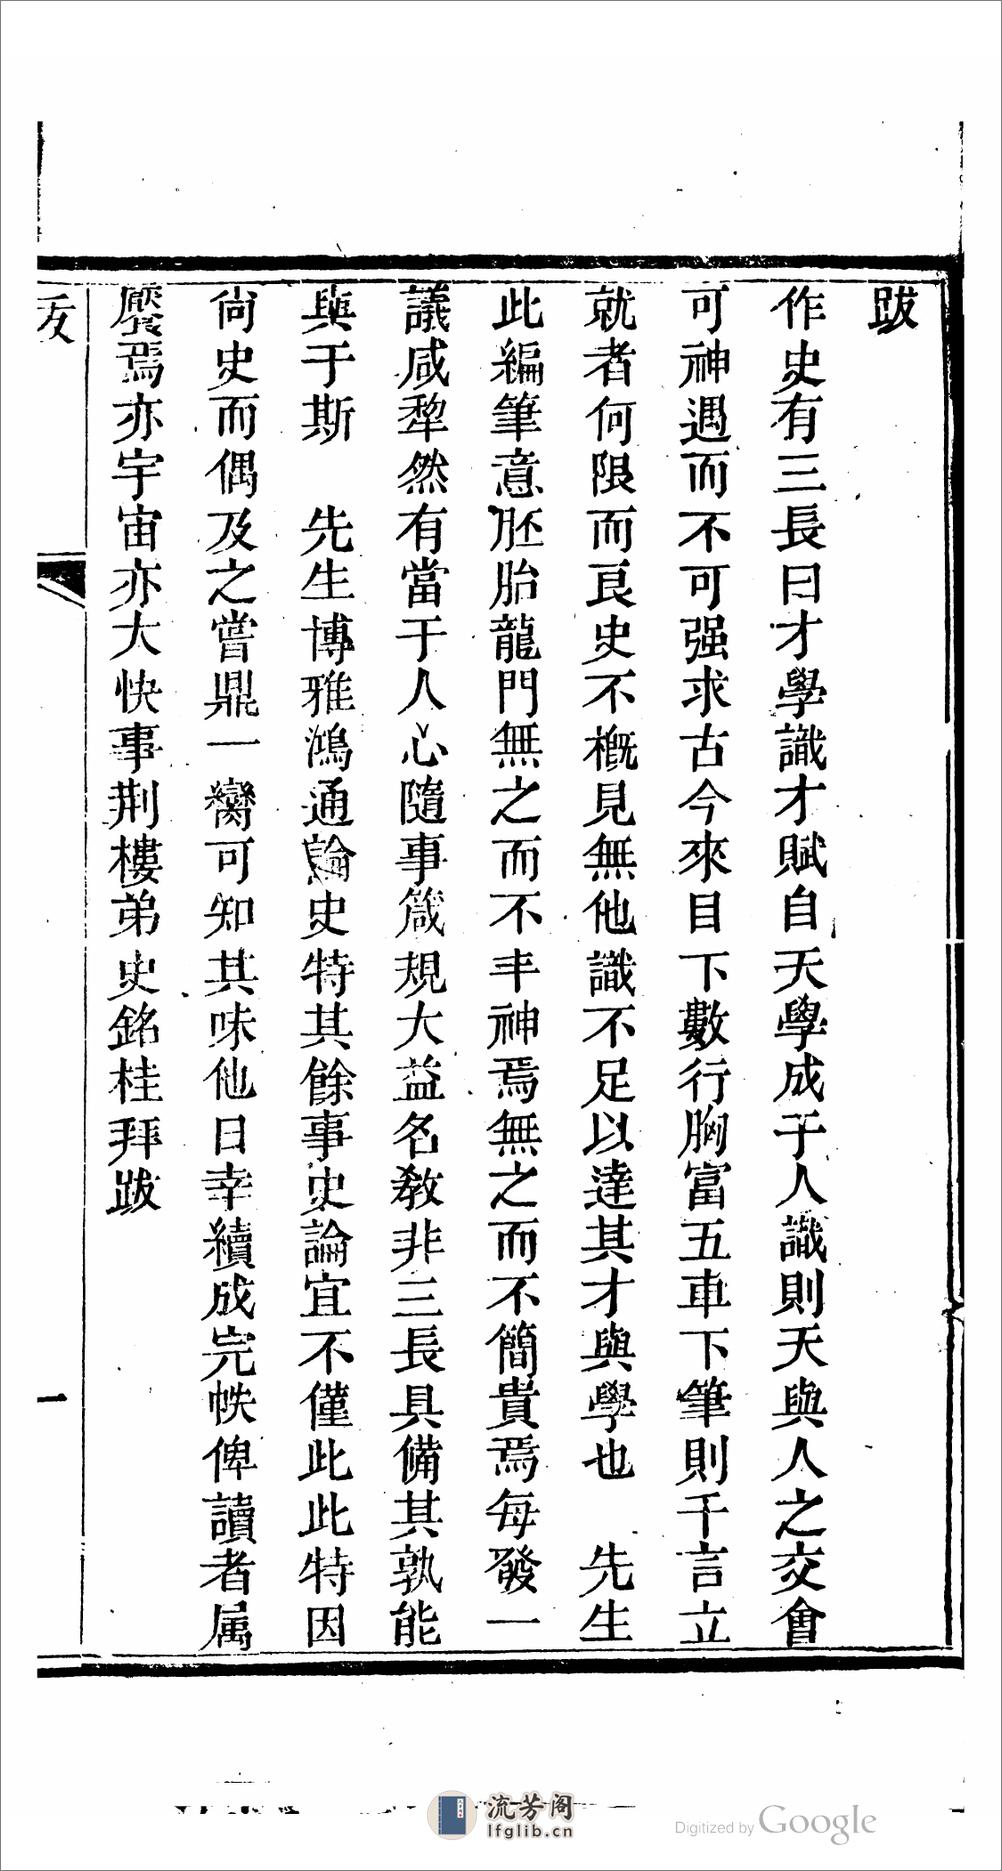 跋
作史有三長曰才學識才賦自天學成于人識則天與人之交會
可神遇而不可强求古今來目下數行胸富五車下筆則千言立
就者何限而良史不槪見無他識不足以達其才與學也　先生
此編筆意胚胎龍門無之而不丰神焉無之而不簡貴焉每發一
議咸犂然有當于人心隨事箴規大益名敎非三長具備其孰能
與于斯　先生博雅鴻通論史特其餘事史論宜不僅此此特因
尚史而偶及之嘗鼎一臠可知其味他日幸續成完帙俾讀者属
饜焉亦宇宙亦大快事荆樓弟史銘桂拜跋
一
流芳阁
lfglib.cn
Digitized by Google